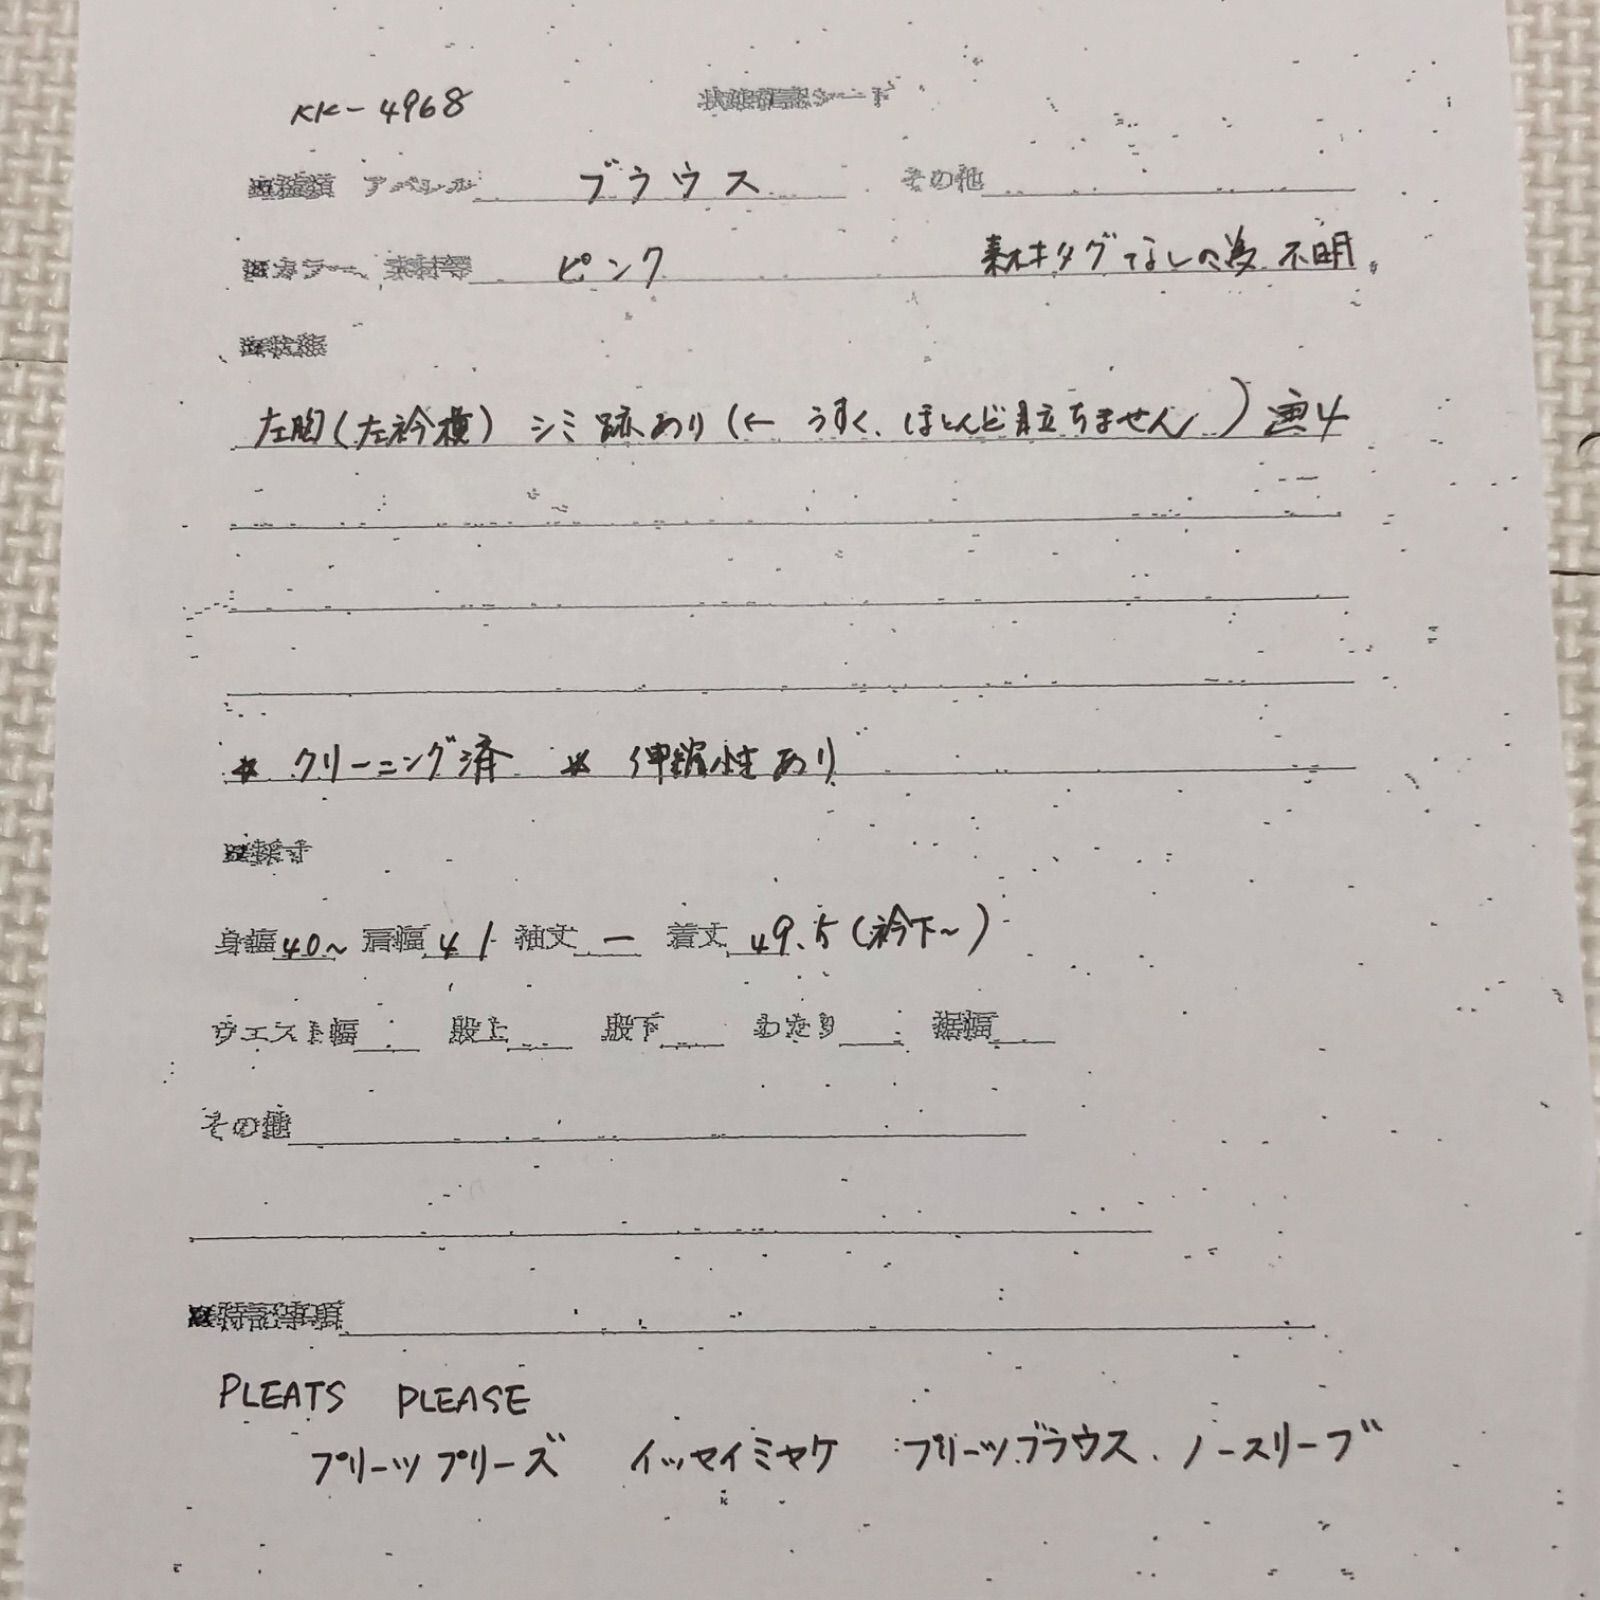 KK-4968 状態確認シート
■種類 アパレル ブラウス その他
■カラー、素材等 ピンク 素材タグなしの為 不明。
■状態
左胸(左衿横) シミ跡あり(← うすく、ほとんど目立ちません) 画4
* クリーニング済 * 伸縮性あり
■採寸
身幅 40~ 肩幅 41 袖丈 ー 着丈 49.5(衿下~)
ウエスト幅 股上 股下 わたり 裾幅
その他
■特記事項
PLEATS PLEASE
プリーツプリーズ イッセイミヤケ プリーツブラウス、ノースリーブ